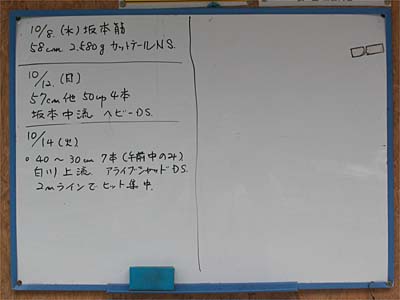 10/8.(水)坂本龍
58cm 2,580g カットテールNS.
10/12.(日)
57cm他 50up 4本
坂本中流 ヘビーDS.
10/14(火)
○ 40〜30cm 7本(午前中のみ)
白川上流 アライブシャッドDS.
2mラインでヒット集中.